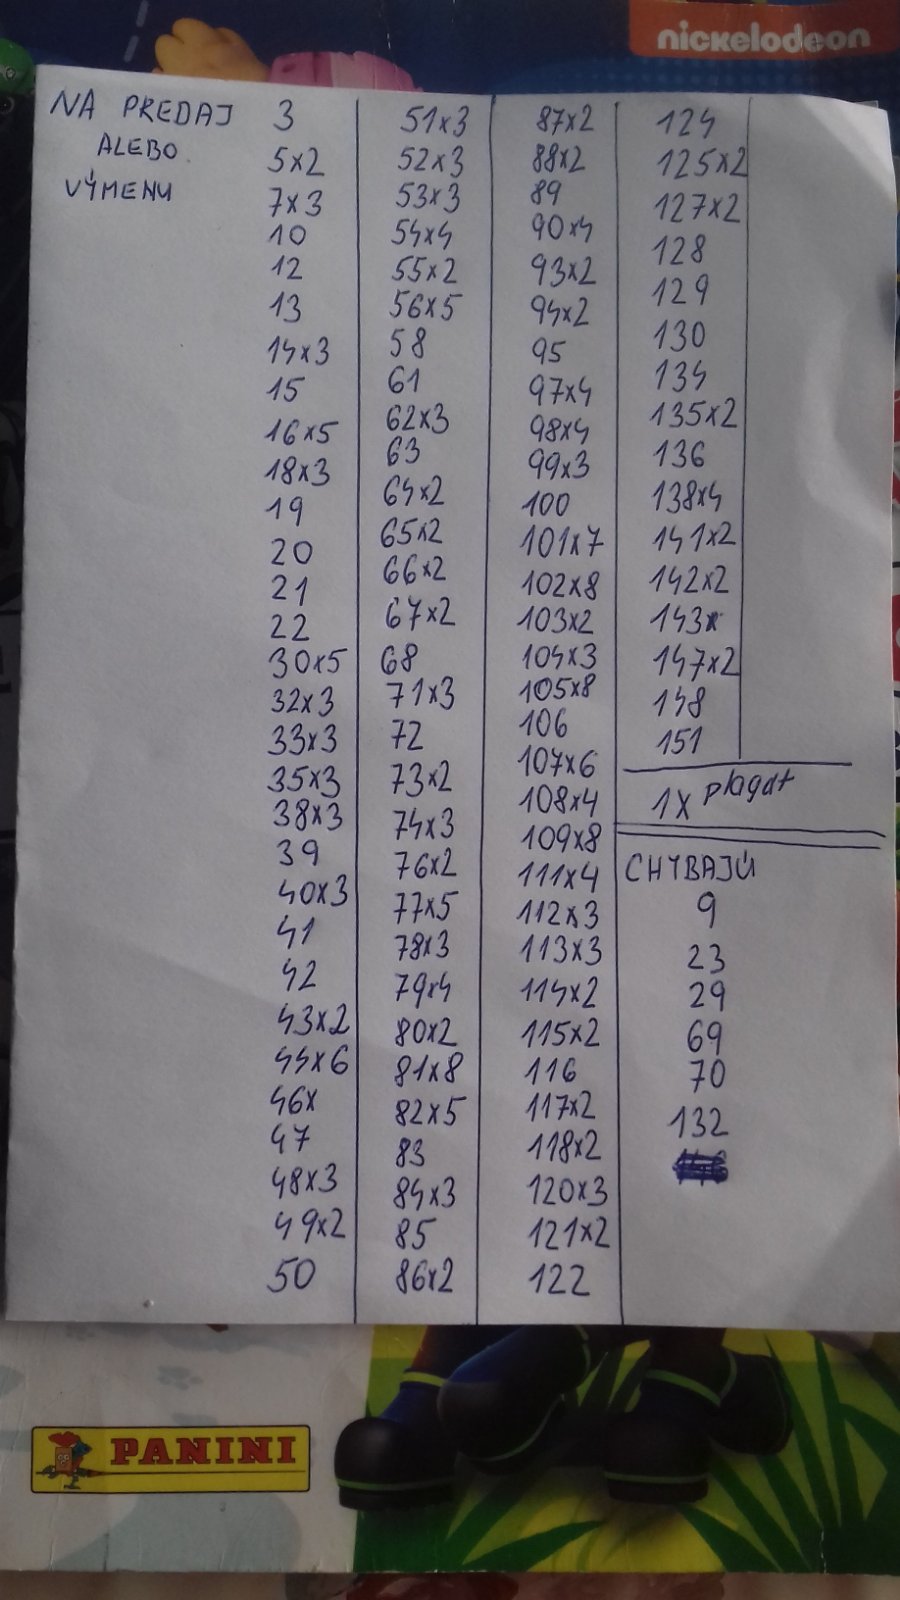 nickelodeon
NA PREDAJ
ALEBO
VÝMENU
3
5x2
7x3
10
12
13
14x3
15
16x5
18x3
19
20
21
22
30x5
32x3
33x3
35x3
38x3
39
40x3
41
42
43x2
44x6
46x
47
48x3
49x2
50
51x3
52x3
53x3
54x4
55x2
56x5
58
61
62x3
63
64x2
65x2
66x2
67x2
68
71x3
72
73x2
74x3
76x2
77x5
78x3
79x4
80x2
81x8
82x5
83
84x3
85
86x2
87x2
88x2
89
90x4
93x2
94x2
95
97x4
98x4
99x3
100
101x7
102x8
103x2
104x3
105x8
106
107x6
108x4
109x8
111x4
112x3
113x3
114x2
115x2
116
117x2
118x2
120x3
121x2
122
124
125x2
127x2
128
129
130
134
135x2
136
138x4
141x2
142x2
143x
147x2
148
151
1x plagat
CHÝBAJÚ
9
23
29
69
70
132
PANINI